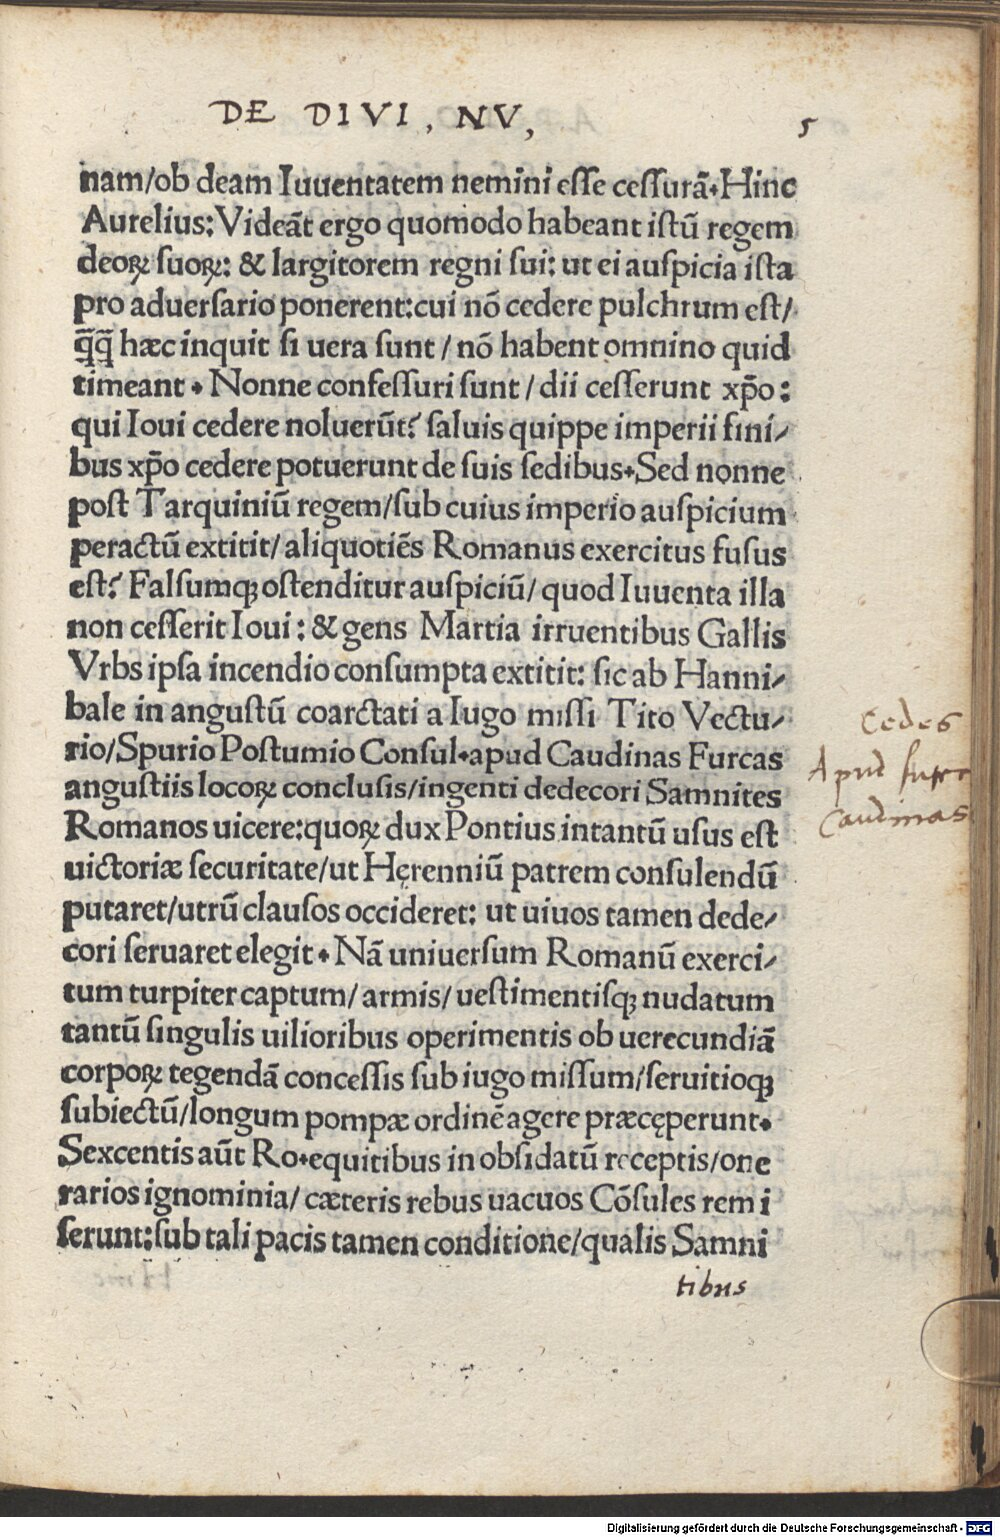 DE DIVI, NV, 5
nam/ob deam Iuuentatem nemini esse cessurā. Hinc
Aurelius: Videāt ergo quomodo habeant istū regem
deoꝝ suoꝝ: & largitorem regni sui: ut ei auspicia ista
pro aduersario ponerent: cui nō cedere pulchrum est/
q̄q̄ hæc inquit si uera sunt / nō habent omnino quid
timeant. Nonne confessuri sunt / dii cesserunt xp̄o:
qui Ioui cedere noluerūt? saluis quippe imperii fini/
bus xp̄o cedere potuerunt de suis sedibus. Sed nonne
post Tarquiniū regem/sub cuius imperio auspicium
peractū extitit/ aliquotiēs Romanus exercitus fusus
est? Falsumqꝫ ostenditur auspiciū/ quod Iuuenta illa
non cesserit Ioui: & gens Martia irruentibus Gallis
Vrbs ipsa incendio consumpta extitit: sic ab Hanni/
bale in angustū coarctati a Iugo missi Tito Vectu/
rio/Spurio Postumio Consul. apud Caudinas Furcas
angustiis locoꝝ conclusis/ingenti dedecori Samnites
Romanos uicere: quoꝝ dux Pontius intantū usus est
uictoriæ securitate/ut Hęrenniū patrem consulendū
putaret/utrū clausos occideret: ut uiuos tamen dede/
cori seruaret elegit. Nā uniuersum Romanū exerci/
tum turpiter captum/ armis/ uestimentisqꝫ nudatum
tantū singulis uilioribus operimentis ob uerecundiā
corpoꝝ tegendā concessis sub iugo missum/seruitioqꝫ
subiectū/longum pompæ ordinē agere præcęperunt.
Sexcentis aūt Ro. equitibus in obsidatū receptis/one
rarios ignominia/ cæteris rebus uacuos Cōsules remi
serunt: sub tali pacis tamen conditione/qualis Samni
tibus
Cedes
Apud furc
Caudinas
Digitalisierung gefördert durch die Deutsche Forschungsgemeinschaft - DFG